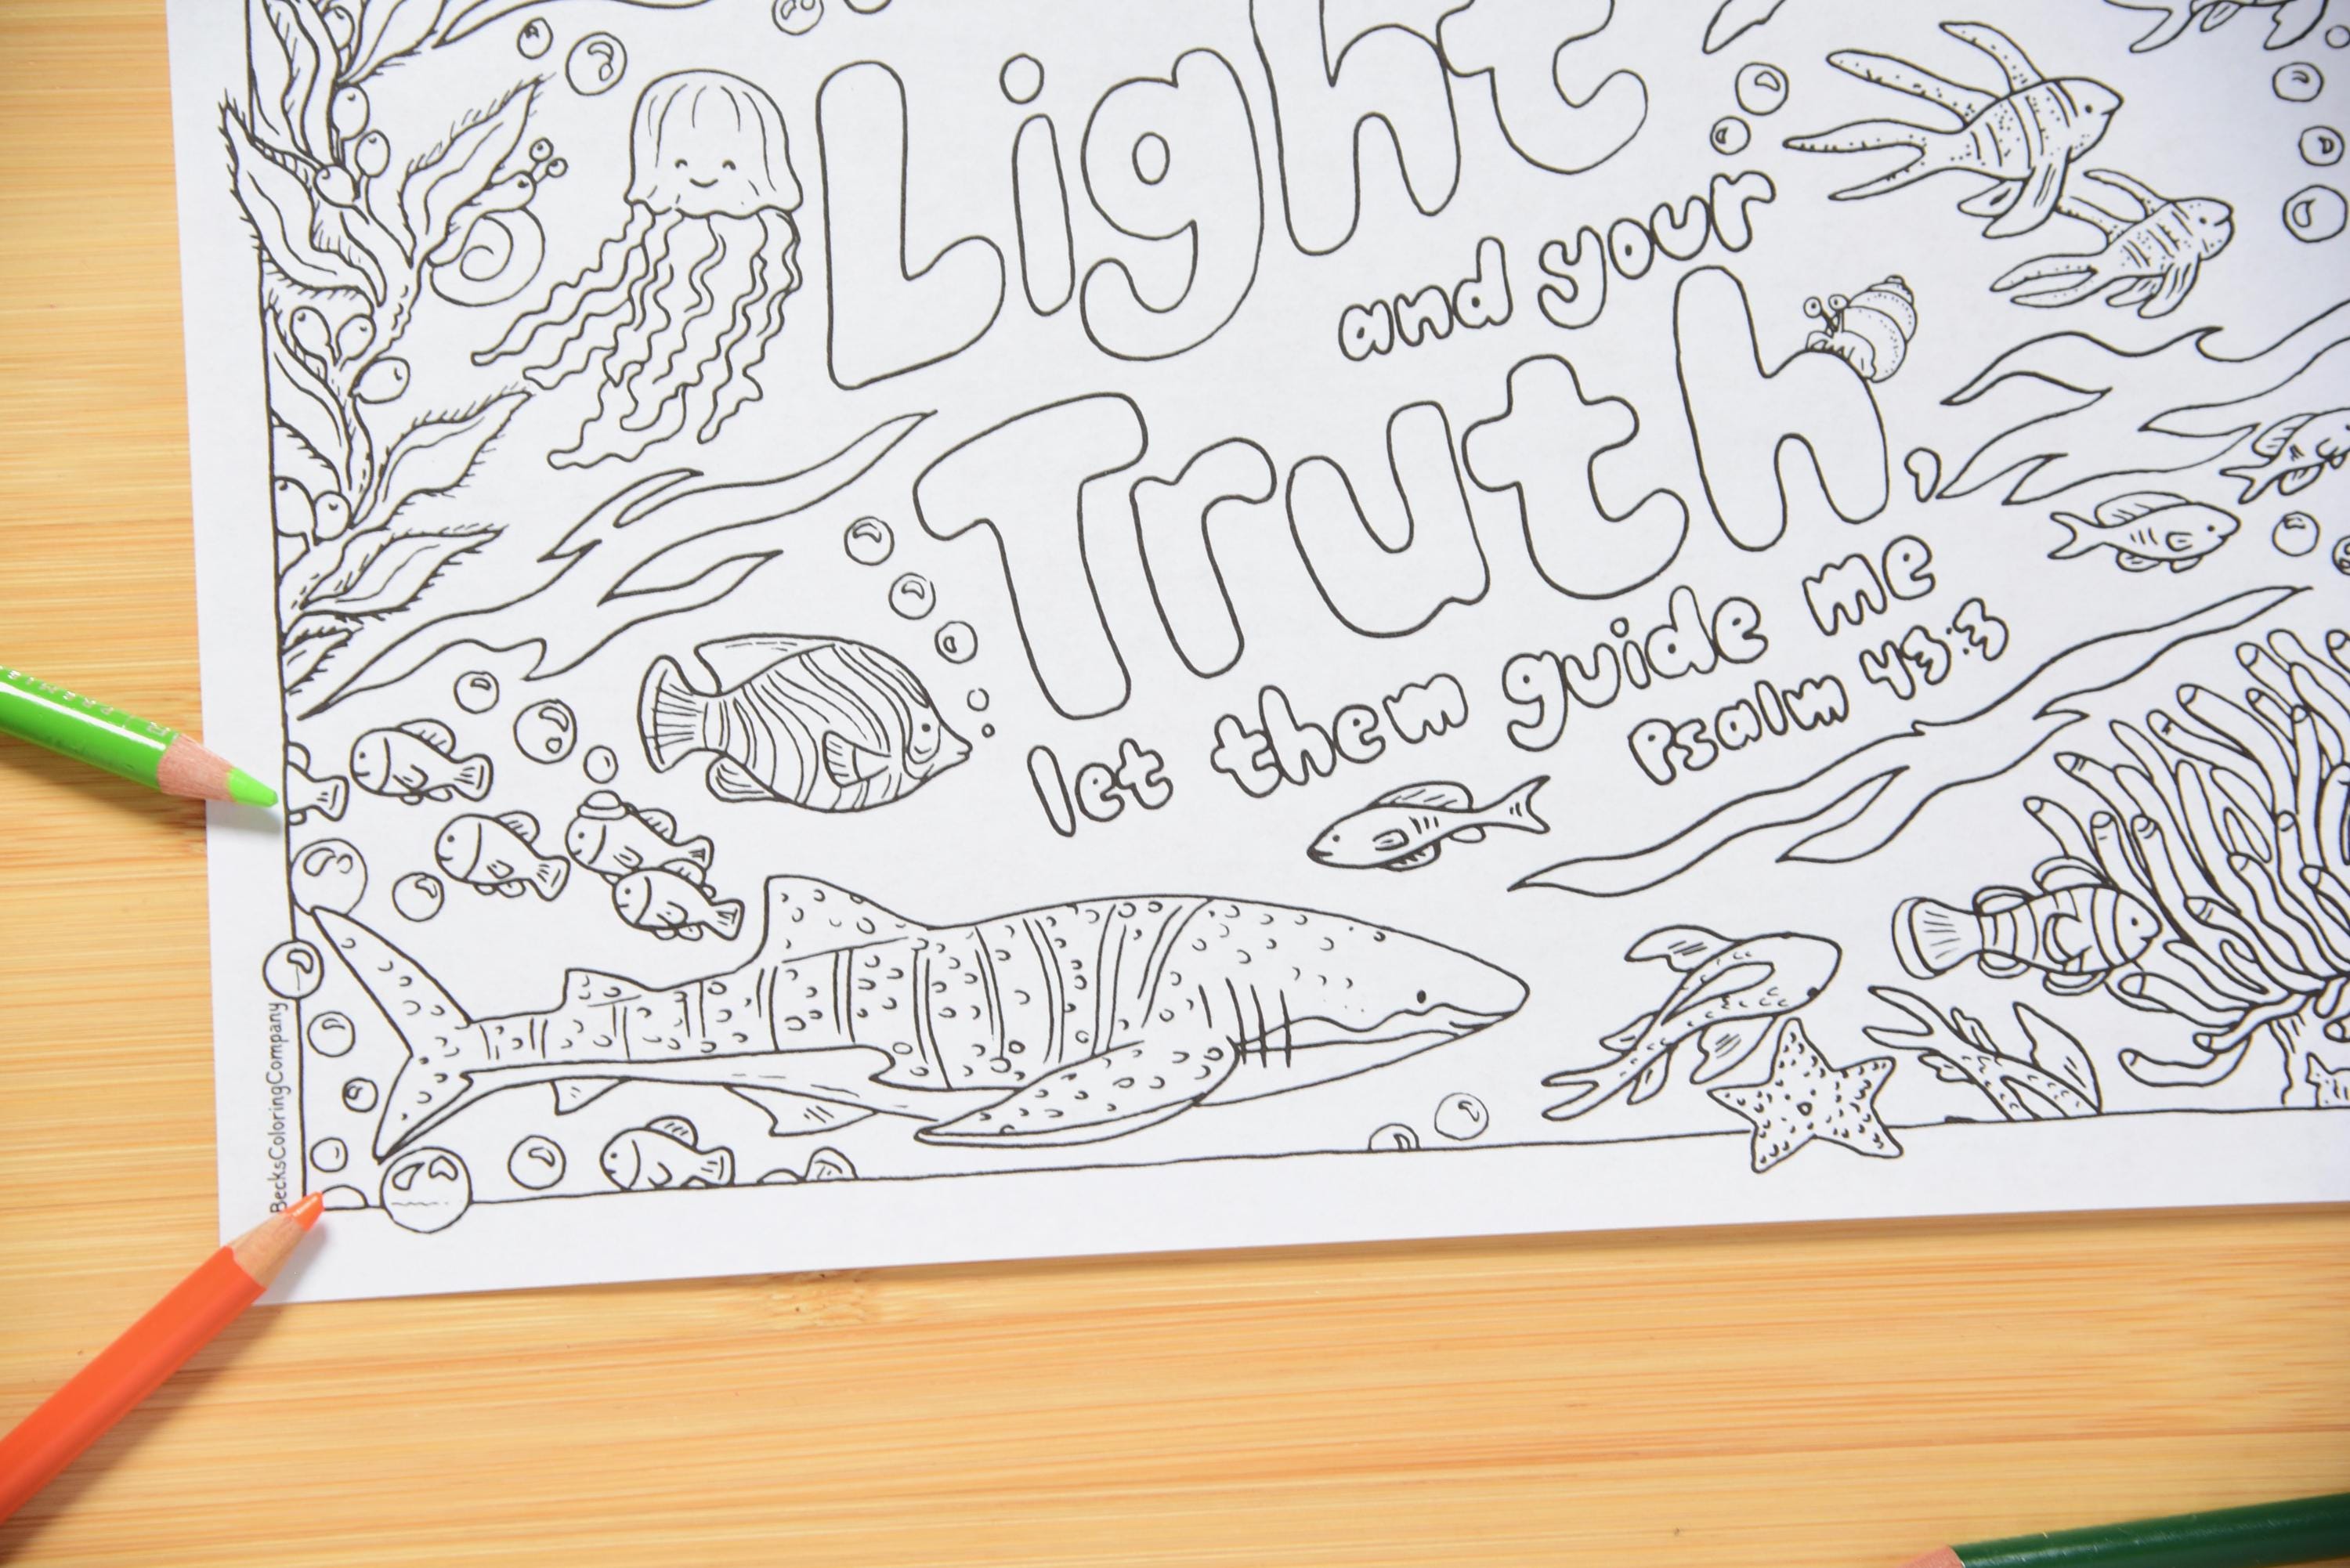 Light
and your
Truth,
let them guide me
Psalm 43:3
BecksColoringCompany